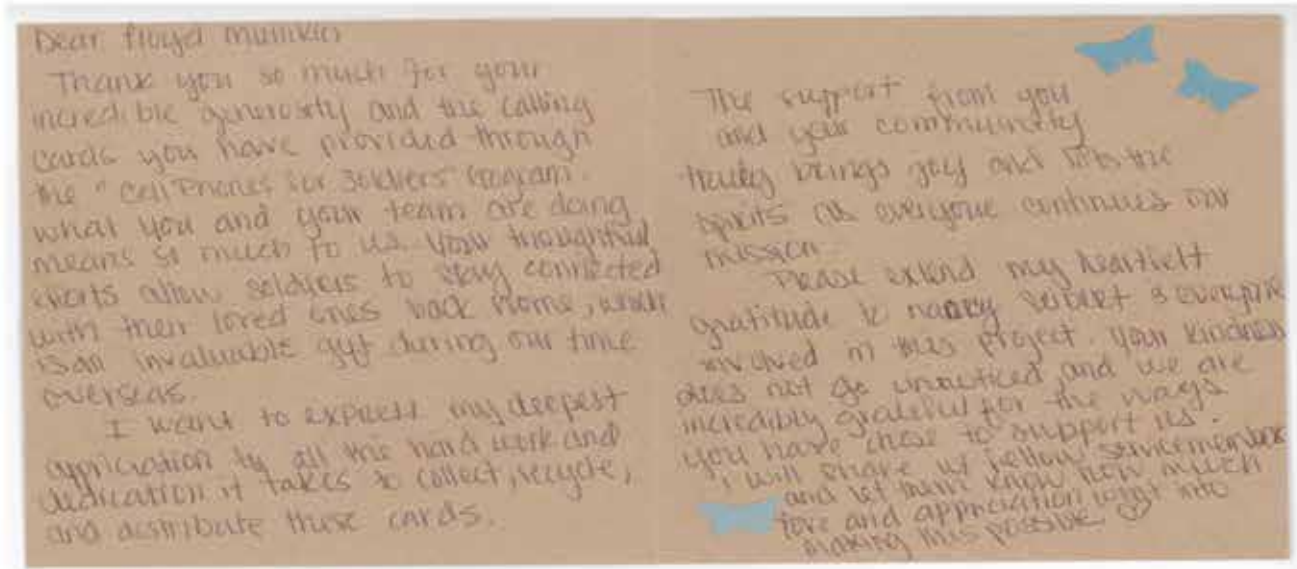 Dear Floyd Mullikin
Thank you so much for your
incredible generosity and the calling
cards you have provided through
the "Cell Phones for Soldiers" Program.
what you and your team are doing
means so much to us. Your thoughtful
efforts allow soldiers to stay connected
with their loved ones back home, which
is an invaluable gift during our time
overseas.
I want to express my deepest
appriciation to all the hard work and
dedication it takes to collect, recycle,
and distribute these cards.
The support from you
and your community
truly brings joy and lifts the
spirits as everyone continues our
mission.
Please extend my heartfelt
gratitude to nancy & everyone
involved in this project. Your kindness
does not go unnoticed, and we are
incredibly grateful for the ways
you have chose to support us.
I will share w/ fellow servicemembers
and let them know how much
love and appriciation went into
making this possible